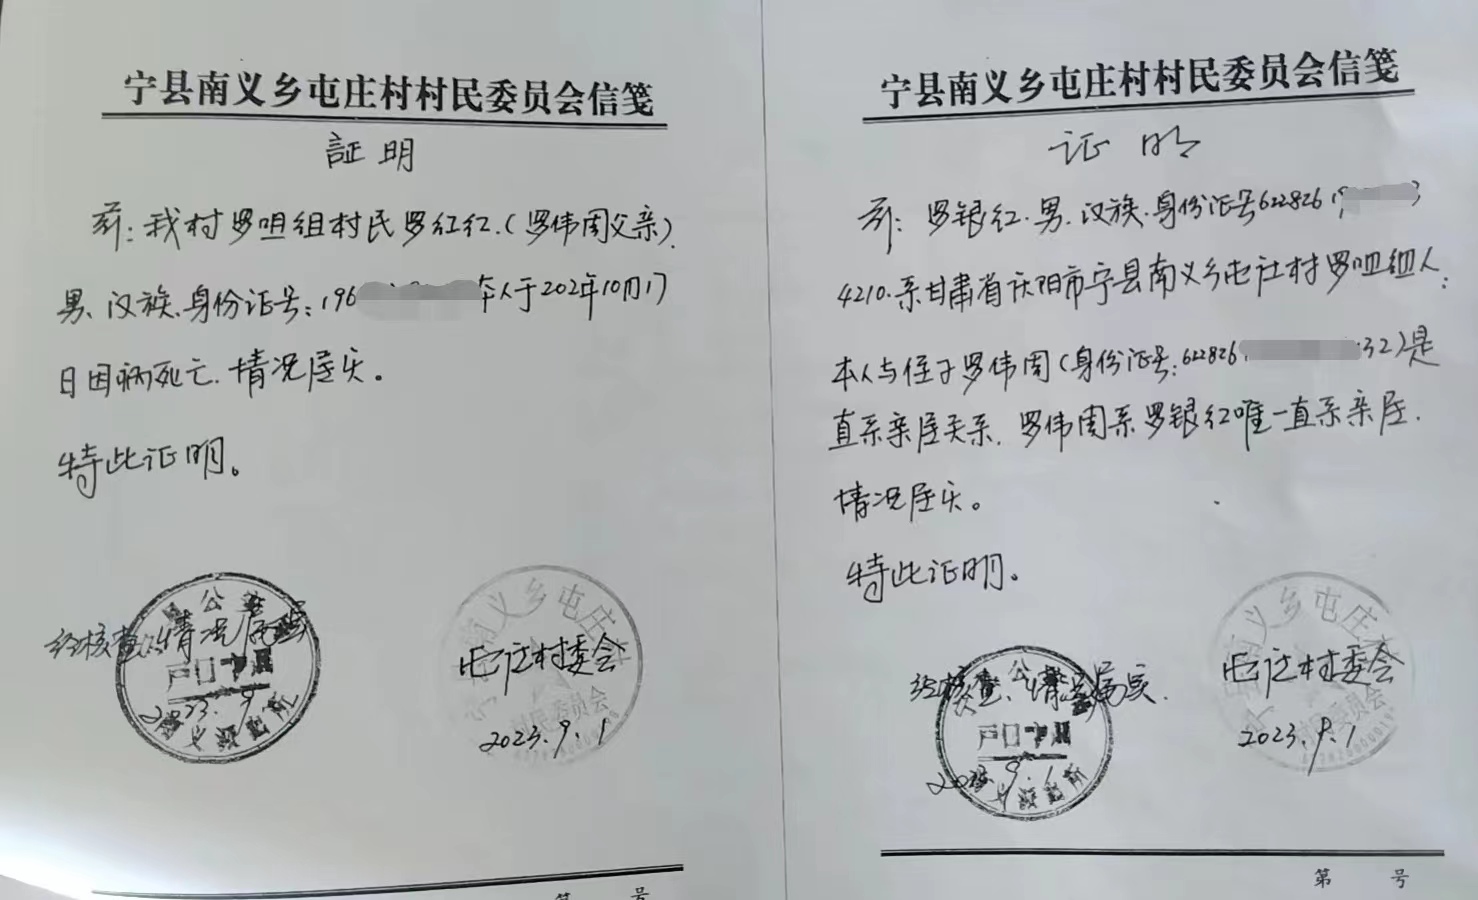 宁县南义乡屯庄村村民委员会信笺
証明
兹:我村罗咀组村民罗红红.(罗伟周父亲).
男、汉族.身份证号:196 本人于202年10月17
日因病死亡.情况属实。
特此证明。
经核查,情况属实
户口专用
2023.9.1
南义乡屯庄村
村民委员会
屯庄村委会
2023.9.1
宁县南义乡屯庄村村民委员会信笺
证明
兹:罗银红.男.汉族.身份证号622826 19
4210.系甘肃省庆阳市宁县南义乡屯庄村罗咀组人.
本人与侄子罗伟周(身份证号:622826 32)是
直系亲属关系.罗伟周系罗银红唯一直系亲属.
情况属实。
特此证明。
经核查、情况属实.
户口专用
2023.9.1
南义乡屯庄村
村民委员会
屯庄村委会
2023.9.1
第 号
第 号